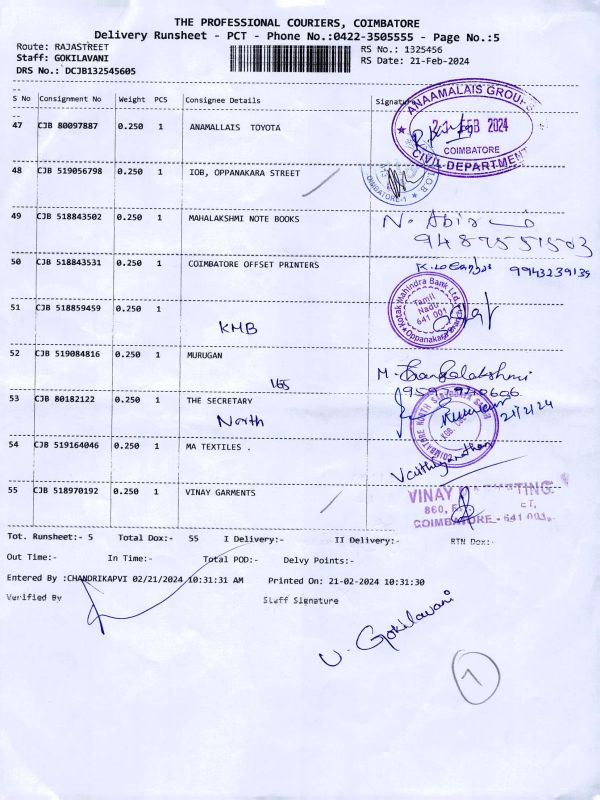 THE PROFESSIONAL COURIERS, COIMBATORE
Delivery Runsheet - PCT - Phone No.:0422-3505555 - Page No.:5
Route: RAJASTREET
RS No.: 1325456
Staff: GOKILAVANI
RS Date: 21-Feb-2024
DRS No.: DCJB132545605
S No Consignment No Weight PCS Consignee Details Signature
47 CJB 80097887 0.250 1 ANAMALLAIS TOYOTA
ANAAMALAIS GROUP
21 FEB 2024
COIMBATORE
CIVIL DEPARTMENT
48 CJB 519056798 0.250 1 IOB, OPPANAKARA STREET
49 CJB 518843502 0.250 1 MAHALAKSHMI NOTE BOOKS
N. Abi
9487551503
50 CJB 518843531 0.250 1 COIMBATORE OFFSET PRINTERS
9943239139
51 CJB 518859459 0.250 1
KMB
Kotak Mahindra Bank Ltd.
Tamil
Nadu
641 001
52 CJB 519084816 0.250 1 MURUGAN
53 CJB 80182122 0.250 1 THE SECRETARY
North
21/2/24
54 CJB 519164046 0.250 1 MA TEXTILES .
55 CJB 518970192 0.250 1 VINAY GARMENTS
VINAY
860,
COIMBATORE - 641 001.
Tot. Runsheet:- 5 Total Dox:- 55 I Delivery:- II Delivery:- RTN Dox:-
Out Time:- In Time:- Total POD:- Delvy Points:-
Entered By :CHANDRIKAPVI 02/21/2024 10:31:31 AM Printed On: 21-02-2024 10:31:30
Verified By Staff Signature
V. Gokilavani
7